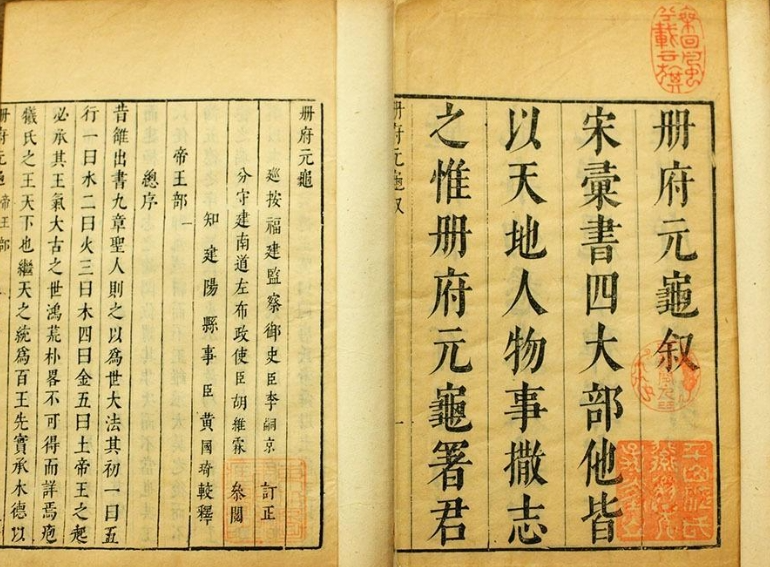 册府元龜叙
宋彙書四大部他皆
以天地人物事撒志
之惟册府元龜署君
册府元龜叙
一
册府元龜
巡按福建監察御史臣李嗣京 訂正
分守建南道左布政使臣胡維霖 叅閲
知建陽縣事臣黄國琦較釋
帝王部 一
總序
昔雒出書九章聖人則之以爲世大法其初一曰五
行一曰水二曰火三曰木四曰金五曰土帝王之起
必承其王氣大古之世鴻荒朴畧不可得而詳焉庖
犧氏之王天下也繼天之統爲百王先實承木德以
册府元龜 帝王部